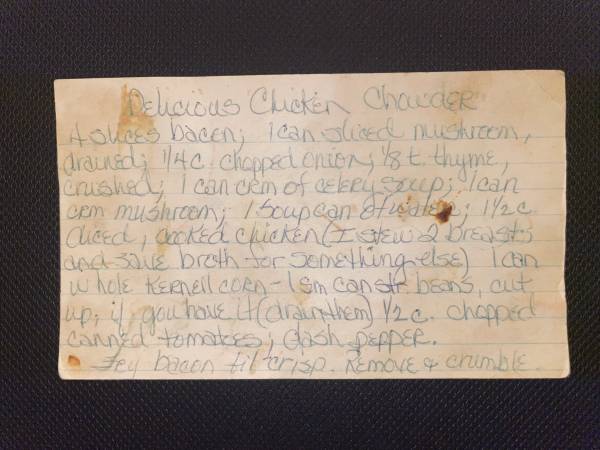 Delicious Chicken Chowder
4 slices bacon; 1 can sliced mushroom,
drained; 1/4 c. chopped onion; 1/8 t. thyme,
crushed; 1 can crm of celery soup; 1 can
crm mushroom; 1 soup can of water; 1 1/2 c.
diced, cooked chicken (I stew 2 breasts
and save broth for something else) 1 can
whole kernell corn - 1 sm can str. beans, cut
up; if you have it (drain them) 1/2 c. chopped
canned tomatoes; dash pepper.
Fry bacon til crisp. Remove & crumble.